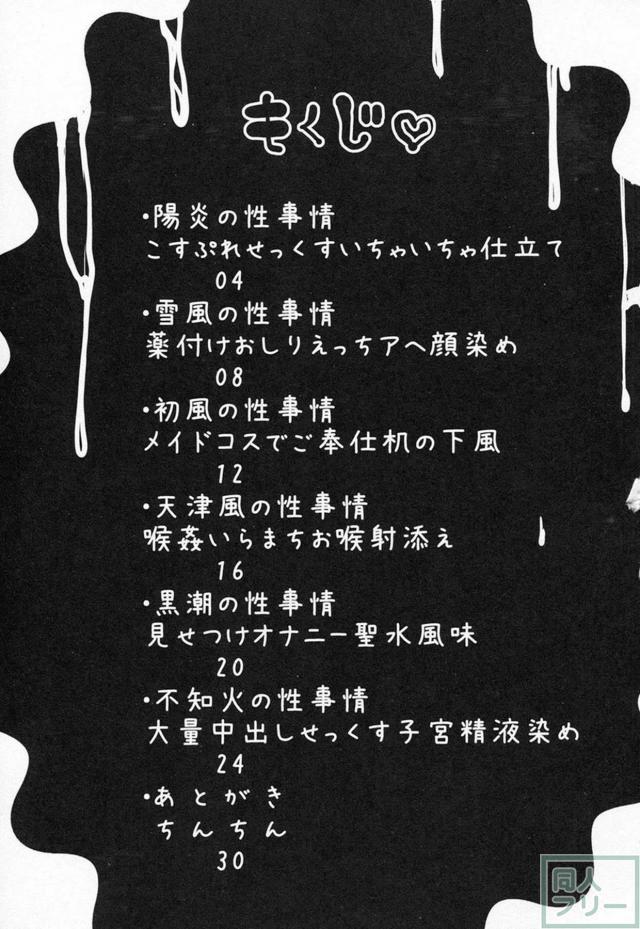 もくじ♡
・陽炎の性事情
こすぷれせっくすいちゃいちゃ仕立て
04
・雪風の性事情
薬付けおしりえっちアヘ顔染め
08
・初風の性事情
メイドコスでご奉仕机の下風
12
・天津風の性事情
喉姦いらまちお喉射添え
16
・黒潮の性事情
見せつけオナニー聖水風味
20
・不知火の性事情
大量中出しせっくす子宮精液染め
24
・あとがき
ちんちん
30
同人
フリー